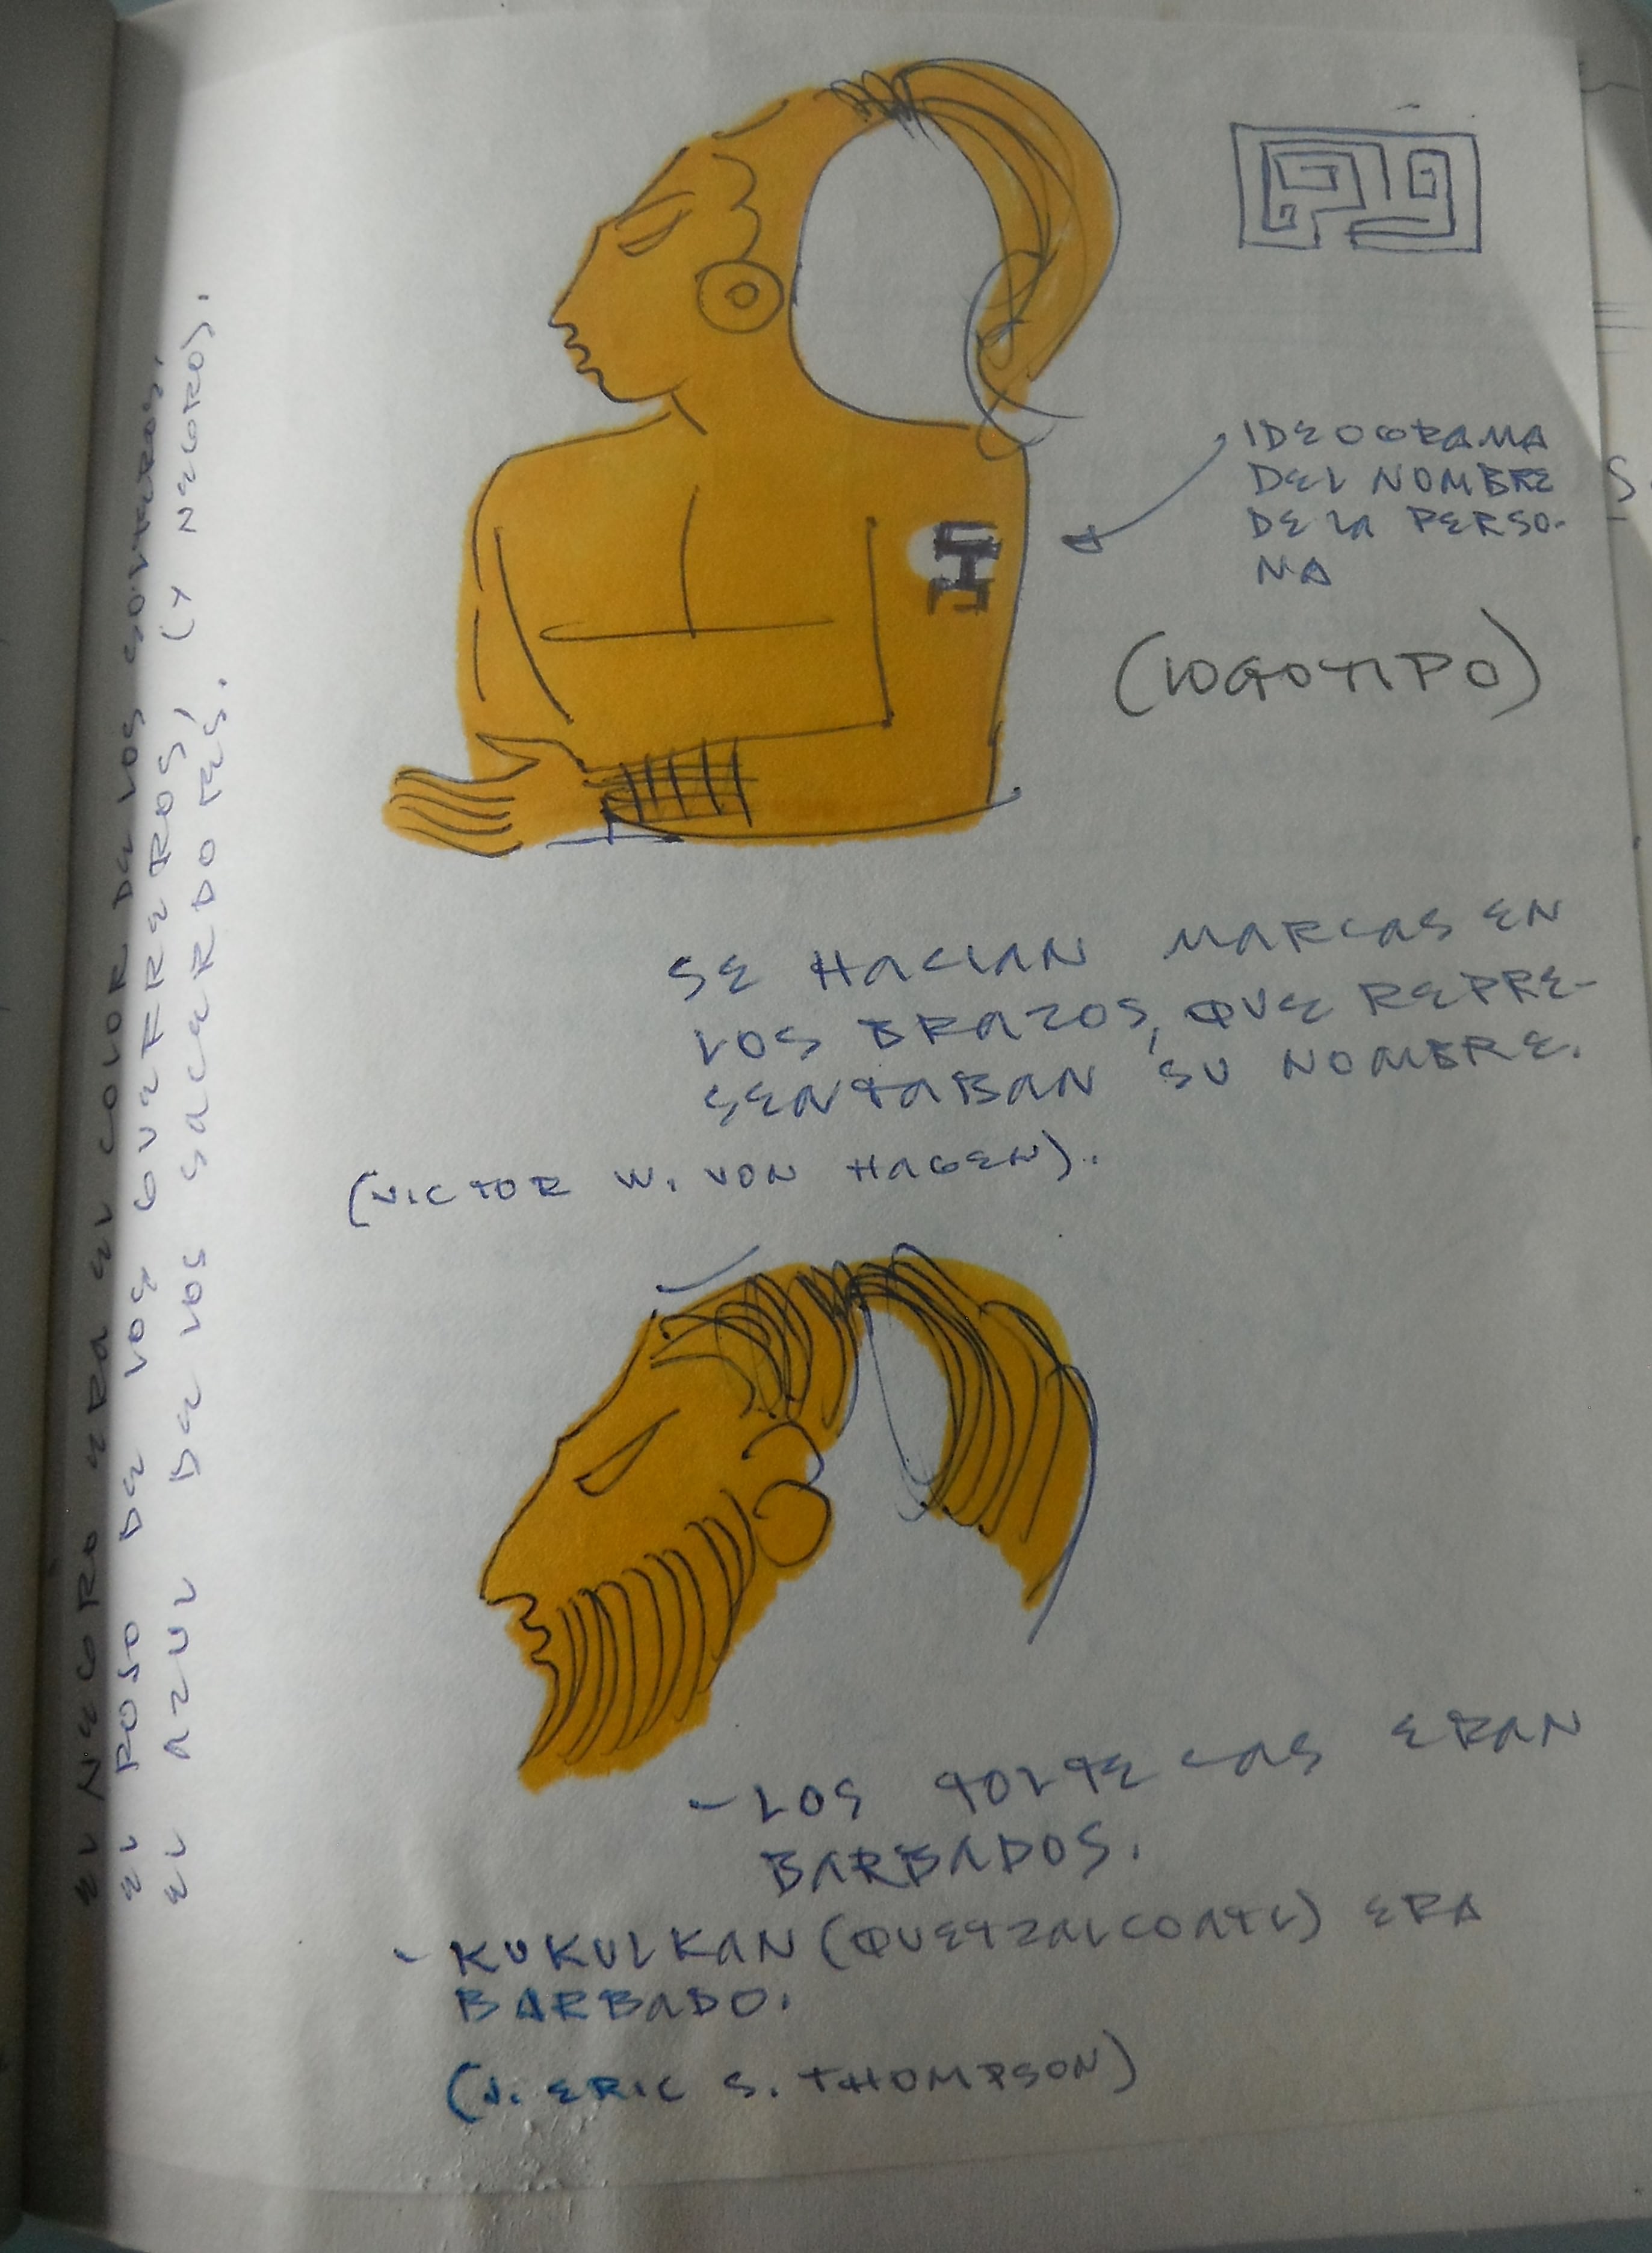 IDEOGRAMA
DEL NOMBRE
DE LA PERSO-
NA
(LOGOTIPO)
SE HACIAN MARCAS EN
LOS BRAZOS, QUE REPRE-
SENTABAN SU NOMBRE.
(VICTOR W. VON HAGEN).
- LOS TOLTECAS ERAN
BARBADOS.
- KUKULKAN (QUETZALCOATL) ERA
BARBADO.
(J. ERIC S. THOMPSON)
EL NEGRO ERA EL COLOR DE LOS SOLTEROS.
EL ROJO DE LOS GUERREROS, (Y NEGRO).
EL AZUL DE LOS SACERDOTES.